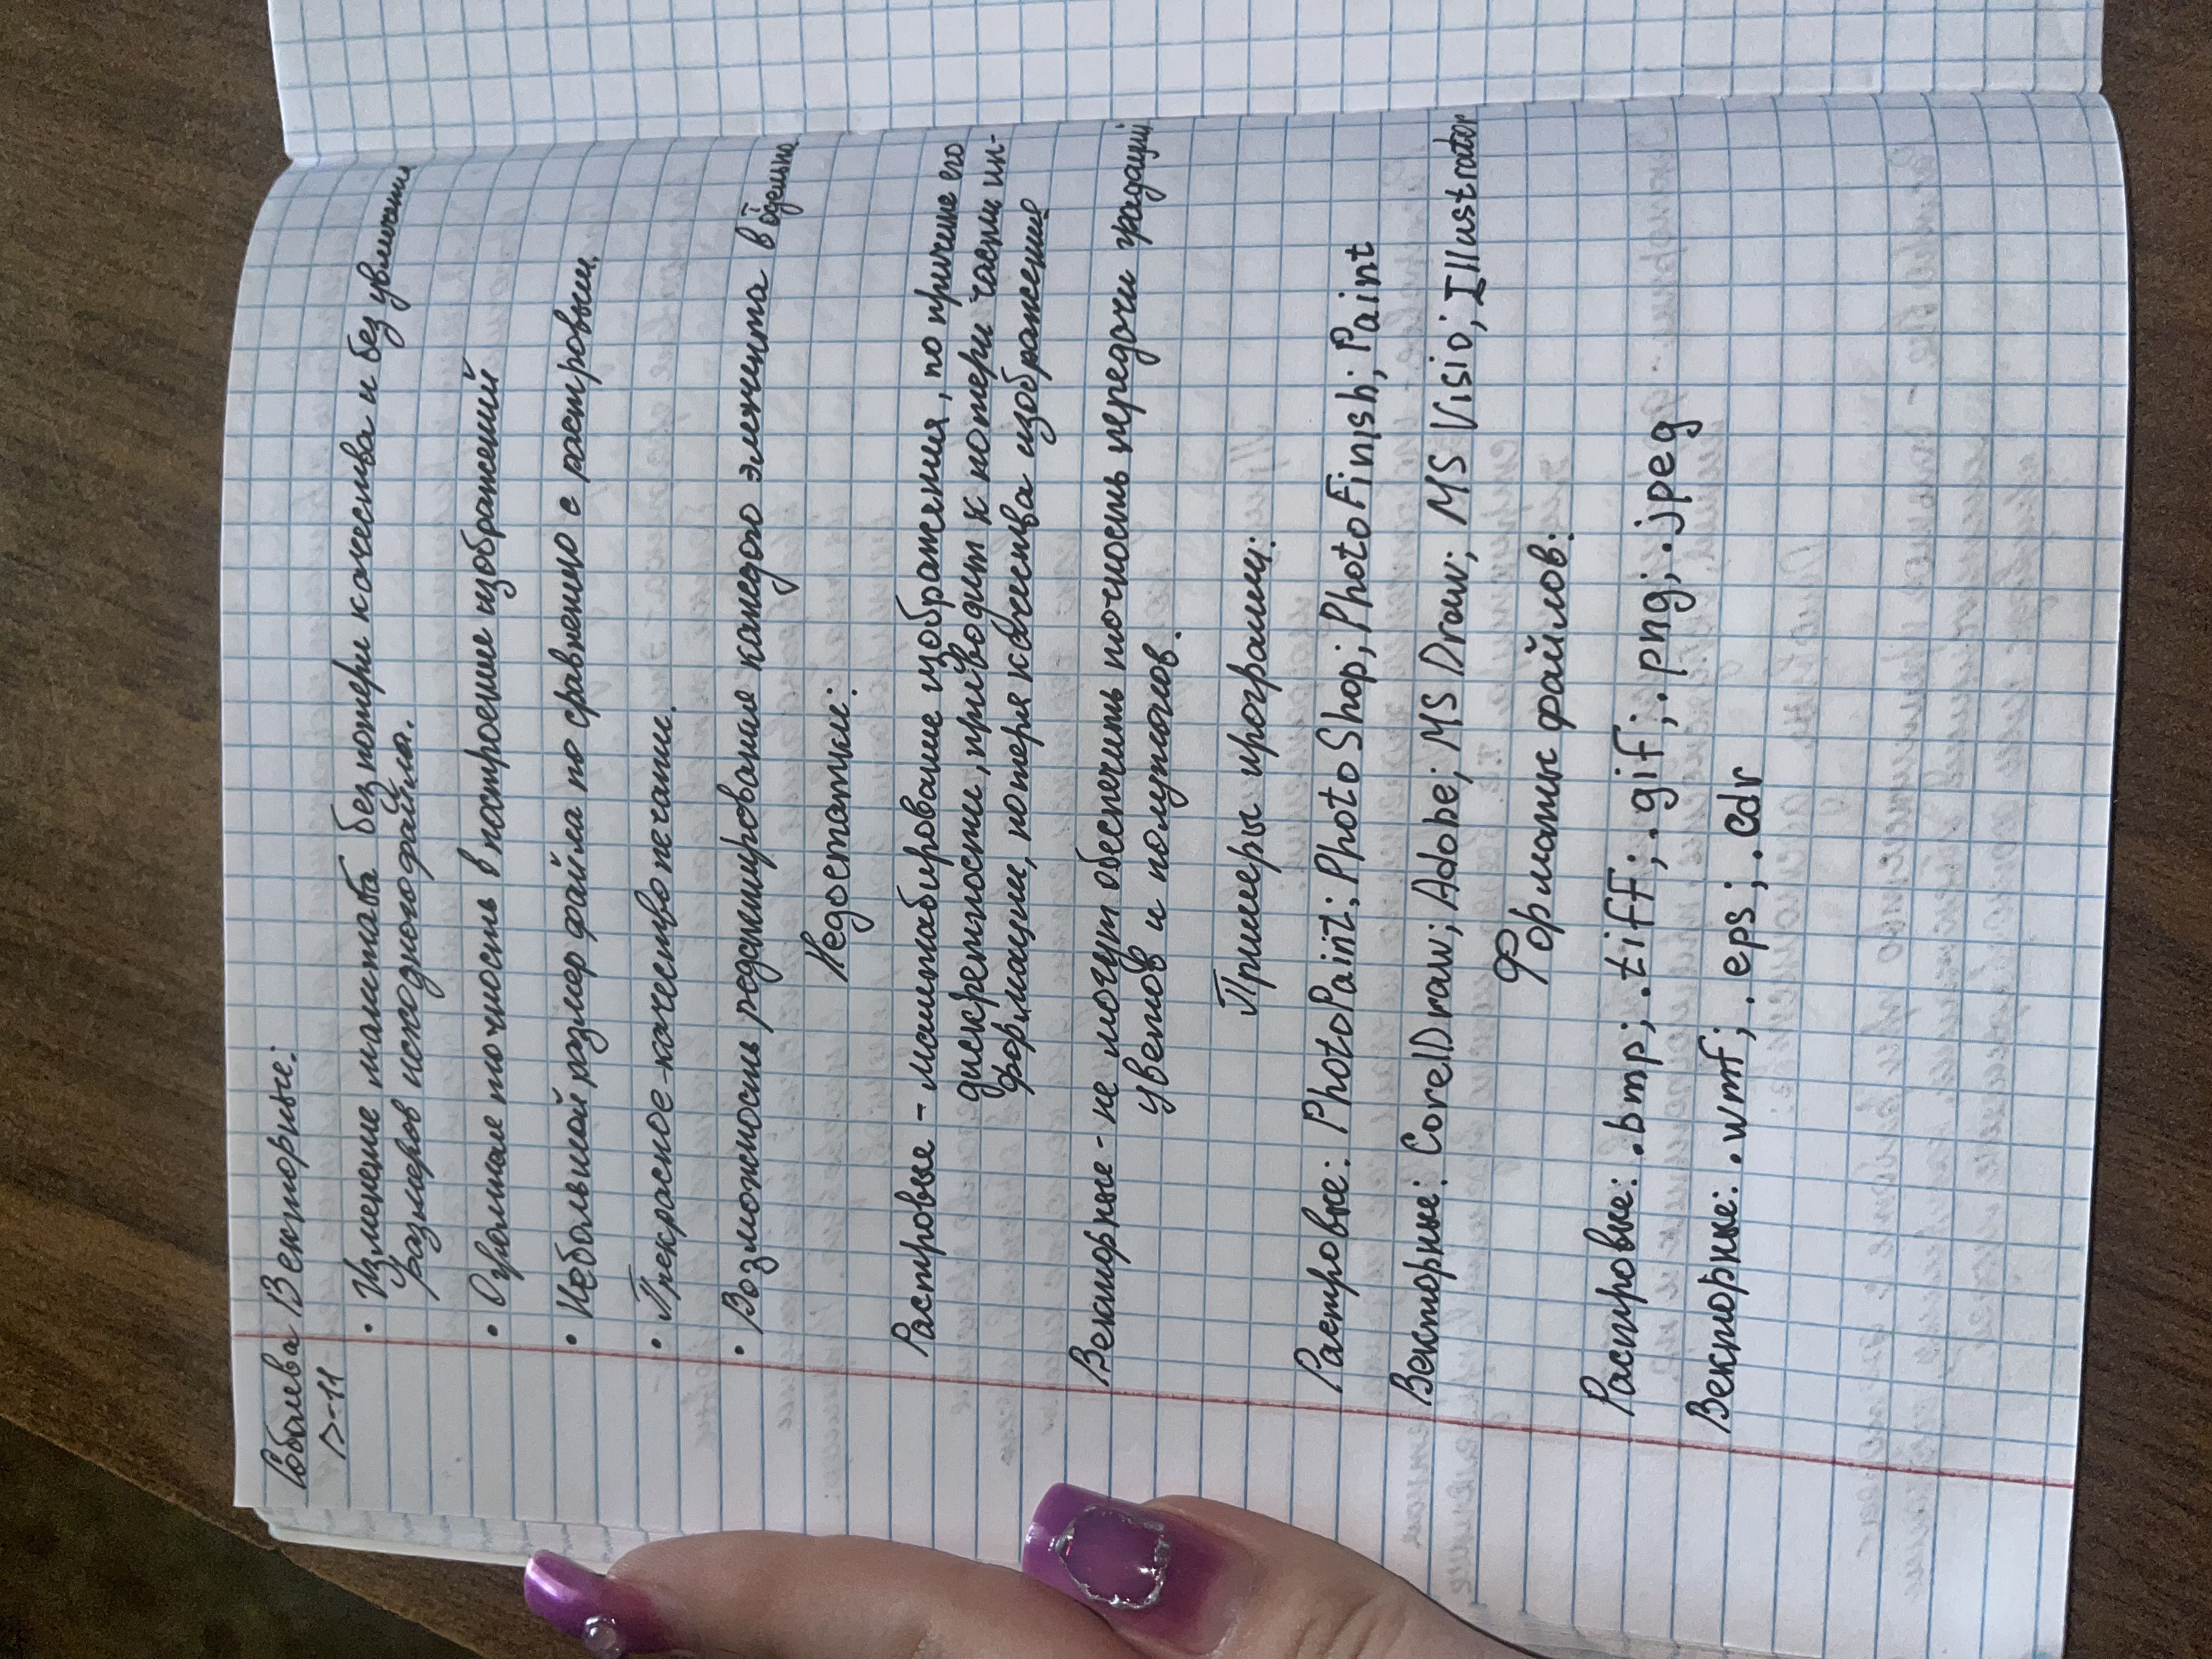 Соболева Векторные:
Р-11
• Изменение масштаба без потери качества и без увеличения
размеров исходного файла.
• Огромная точность в построение изображений
• Небольшой размер файла по сравнению с растровым.
• Прекрасное качество печати.
• Возможность редактирования каждого элемента в отдельно
Недостатки:
Растровые - масштабирование изображения, по причине его
дискретности, приводит к потери части ин-
формации, потеря качества изображение
Векторные - не могут обеспечить точность передачи градаций
цветов и полутонов.
Примеры программ:
Растровые: PhotoPaint; PhotoShop; PhotoFinish; Paint
Векторные: CorelDraw; Adobe; MS Draw; MS Visio; Illustrator
Форматы файлов:
Растровые: .bmp; .tiff; .gif; .png; .jpeg
Векторные: .wmf; .eps; .cdr